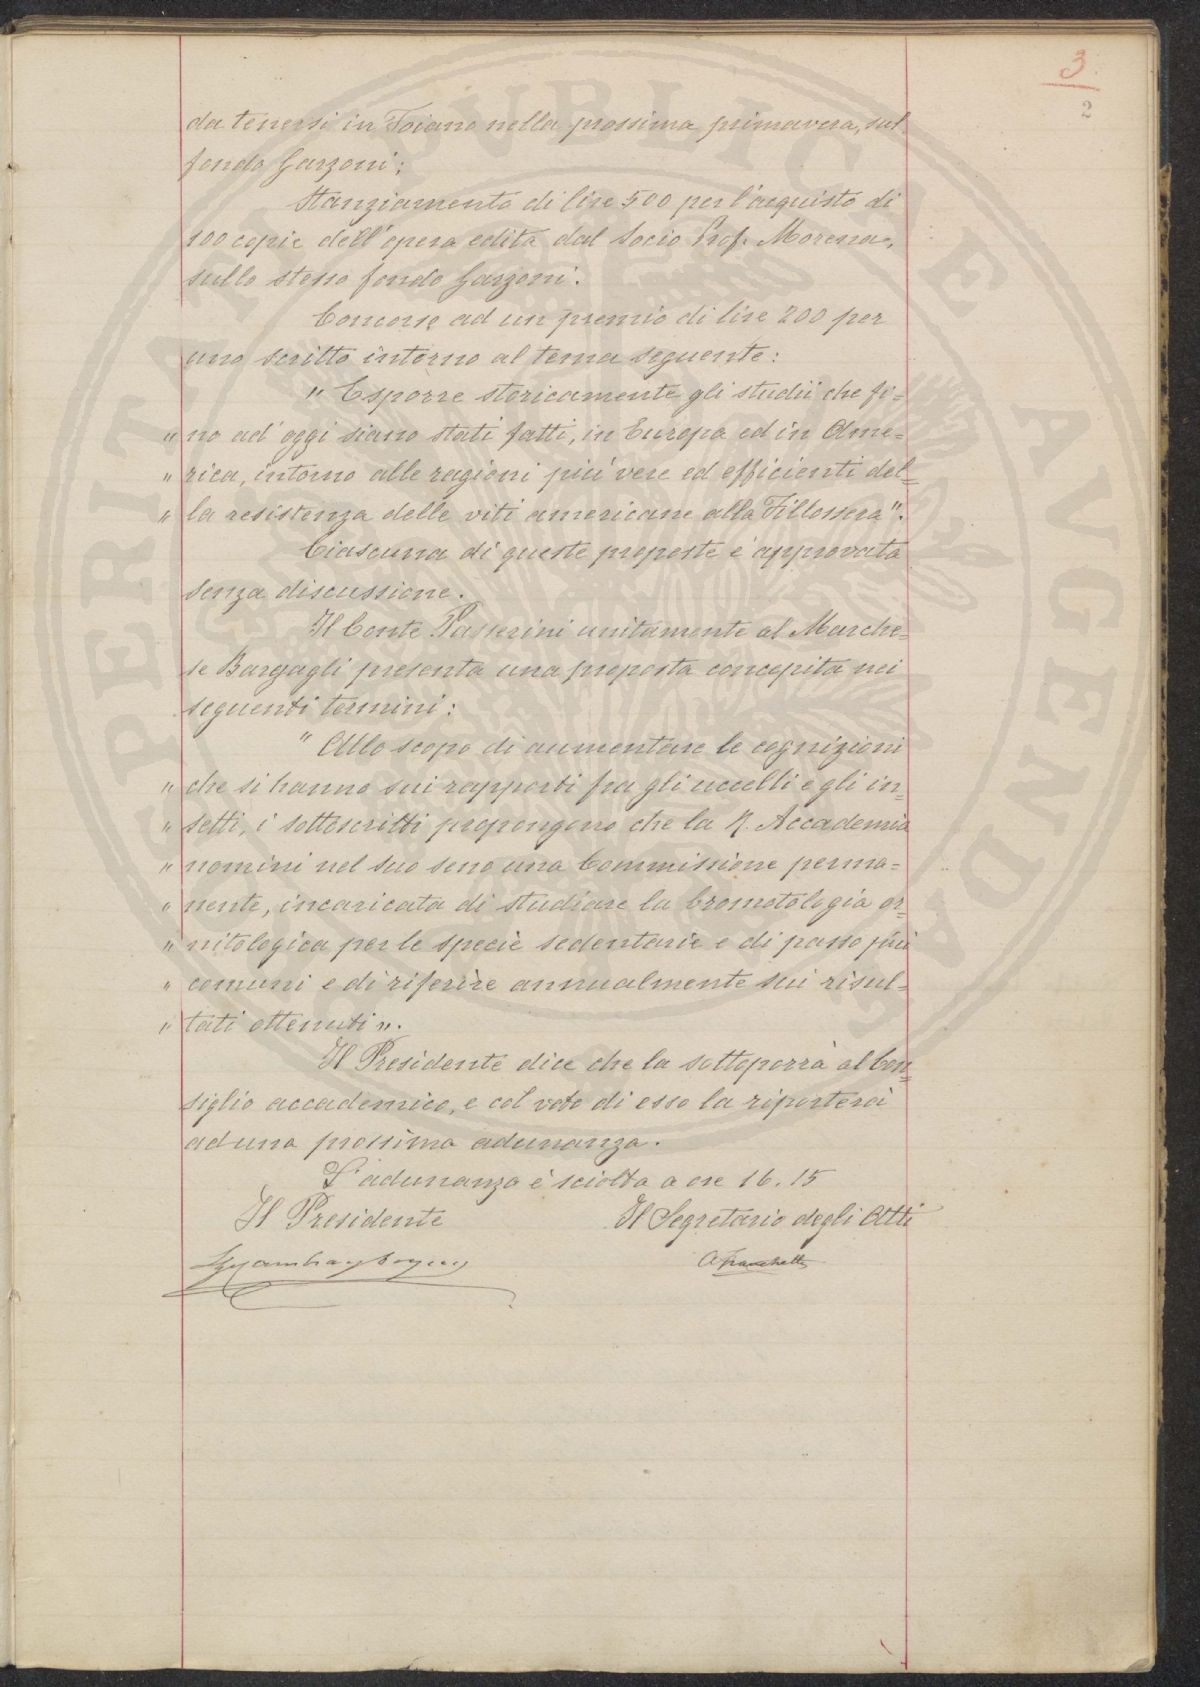 3.
2
da tenersi in Foiano nella prossima primavera, sul
fondo Garzoni;
Stanziamento di lire 500 per l'acquisto di
100 copie dell'opera edita dal Socio Prof. Morena,
sullo stesso fondo Garzoni.
Concorso ad un premio di lire 200 per
uno scritto intorno al tema seguente:
" Esporre storicamente gli studii che fi=
" no ad oggi siano stati fatti, in Europa ed in Ame=
" rica, intorno alle ragioni più vere ed efficienti del=
" la resistenza delle viti americane alla Fillossera".
Ciascuna di queste proposte è approvata
senza discussione.
Il Conte Passerini unitamente al Marche=
se Bargagli presenta una proposta concepita nei
seguenti termini:
" Allo scopo di aumentare le cognizioni
" che si hanno sui rapporti fra gli uccelli e gli in=
" setti, i sottoscritti propongono che la R. Accademia
" nomini nel suo seno una Commissione perma=
" nente, incaricata di studiare la bromotologia or=
" nitologica per le specie sedentarie e di passo più
" comuni e di riferire annualmente sui risul=
" tati ottenuti ".
Il Presidente dice che la sottoporrà al Con=
siglio accademico, e col voto di esso la riporterà
ad una prossima adunanza.
L'adunanza è sciolta a ore 16.15
Il Presidente Il Segretario degli Atti
A Franchetti
PERITATI PUBLICAE AUGENDAE